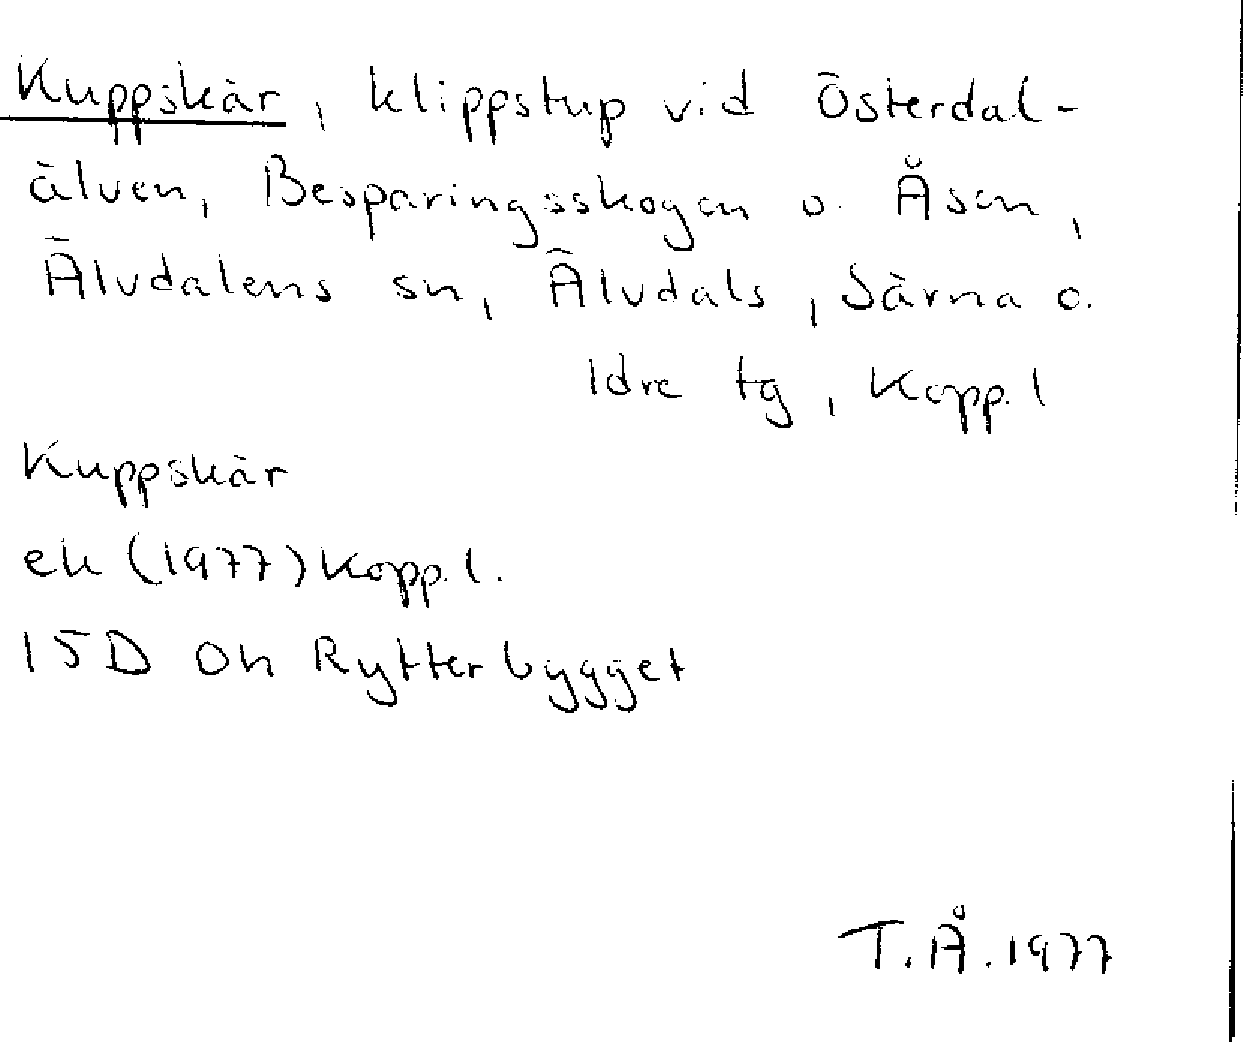 Kuppskär, klippstup vid Österdal-
älven, Besparingsskogen o. Åsen,
Älvdalens sn, Älvdals, Särna o.
Idre tg, Kopp. l
Kuppskär
ek (1977) Kopp. l.
15D Oh Rytterbygget
T.Å. 1977